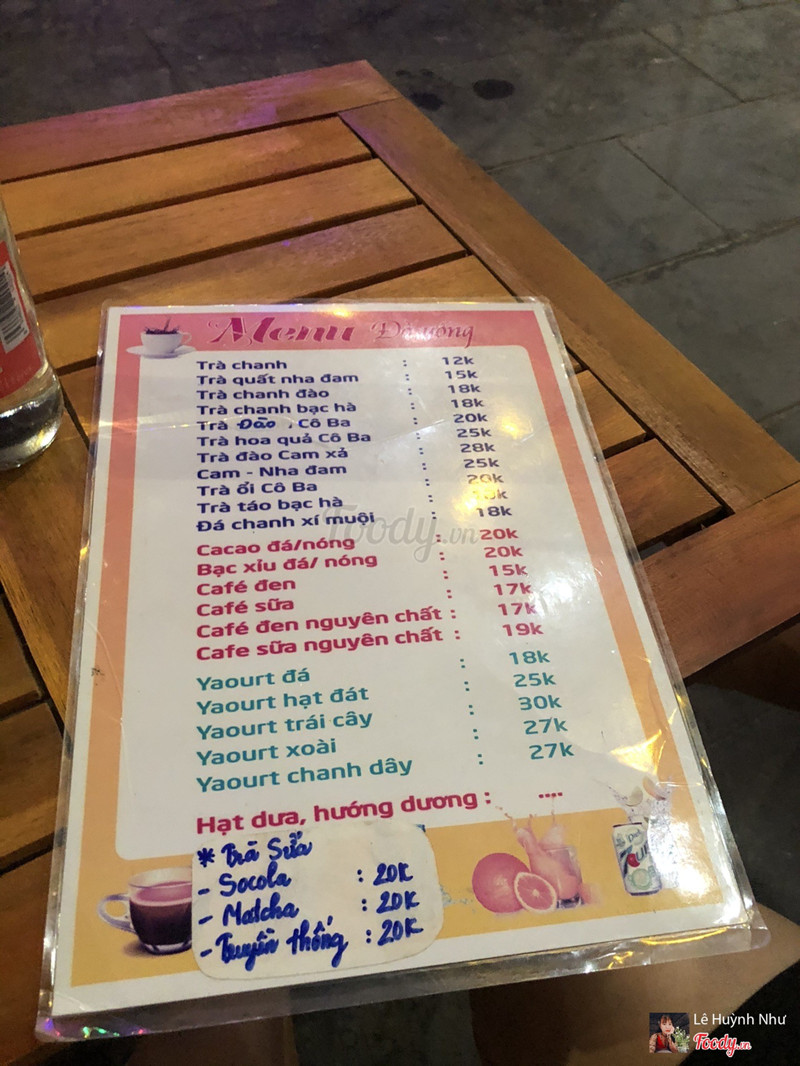 Menu Đồ uống
Trà chanh : 12k
Trà quất nha đam : 15k
Trà chanh đào : 18k
Trà chanh bạc hà : 18k
Trà Đào Cô Ba : 20k
Trà hoa quả Cô Ba : 25k
Trà đào Cam xả : 28k
Cam - Nha đam : 25k
Trà ổi Cô Ba : 20k
Trà táo bạc hà :
Đá chanh xí muội : 18k
Cacao đá/nóng : 20k
Bạc xỉu đá/ nóng : 20k
Café đen : 15k
Café sữa : 17k
Café đen nguyên chất : 17k
Cafe sữa nguyên chất : 19k
Yaourt đá : 18k
Yaourt hạt đát : 25k
Yaourt trái cây : 30k
Yaourt xoài : 27k
Yaourt chanh dây : 27k
Hạt dưa, hướng dương : ....
* Trà Sửa
- Socola : 20K
- Matcha : 20K
- Truyền thống : 20K
Foody.vn
Lê Huỳnh Như
Foody.vn